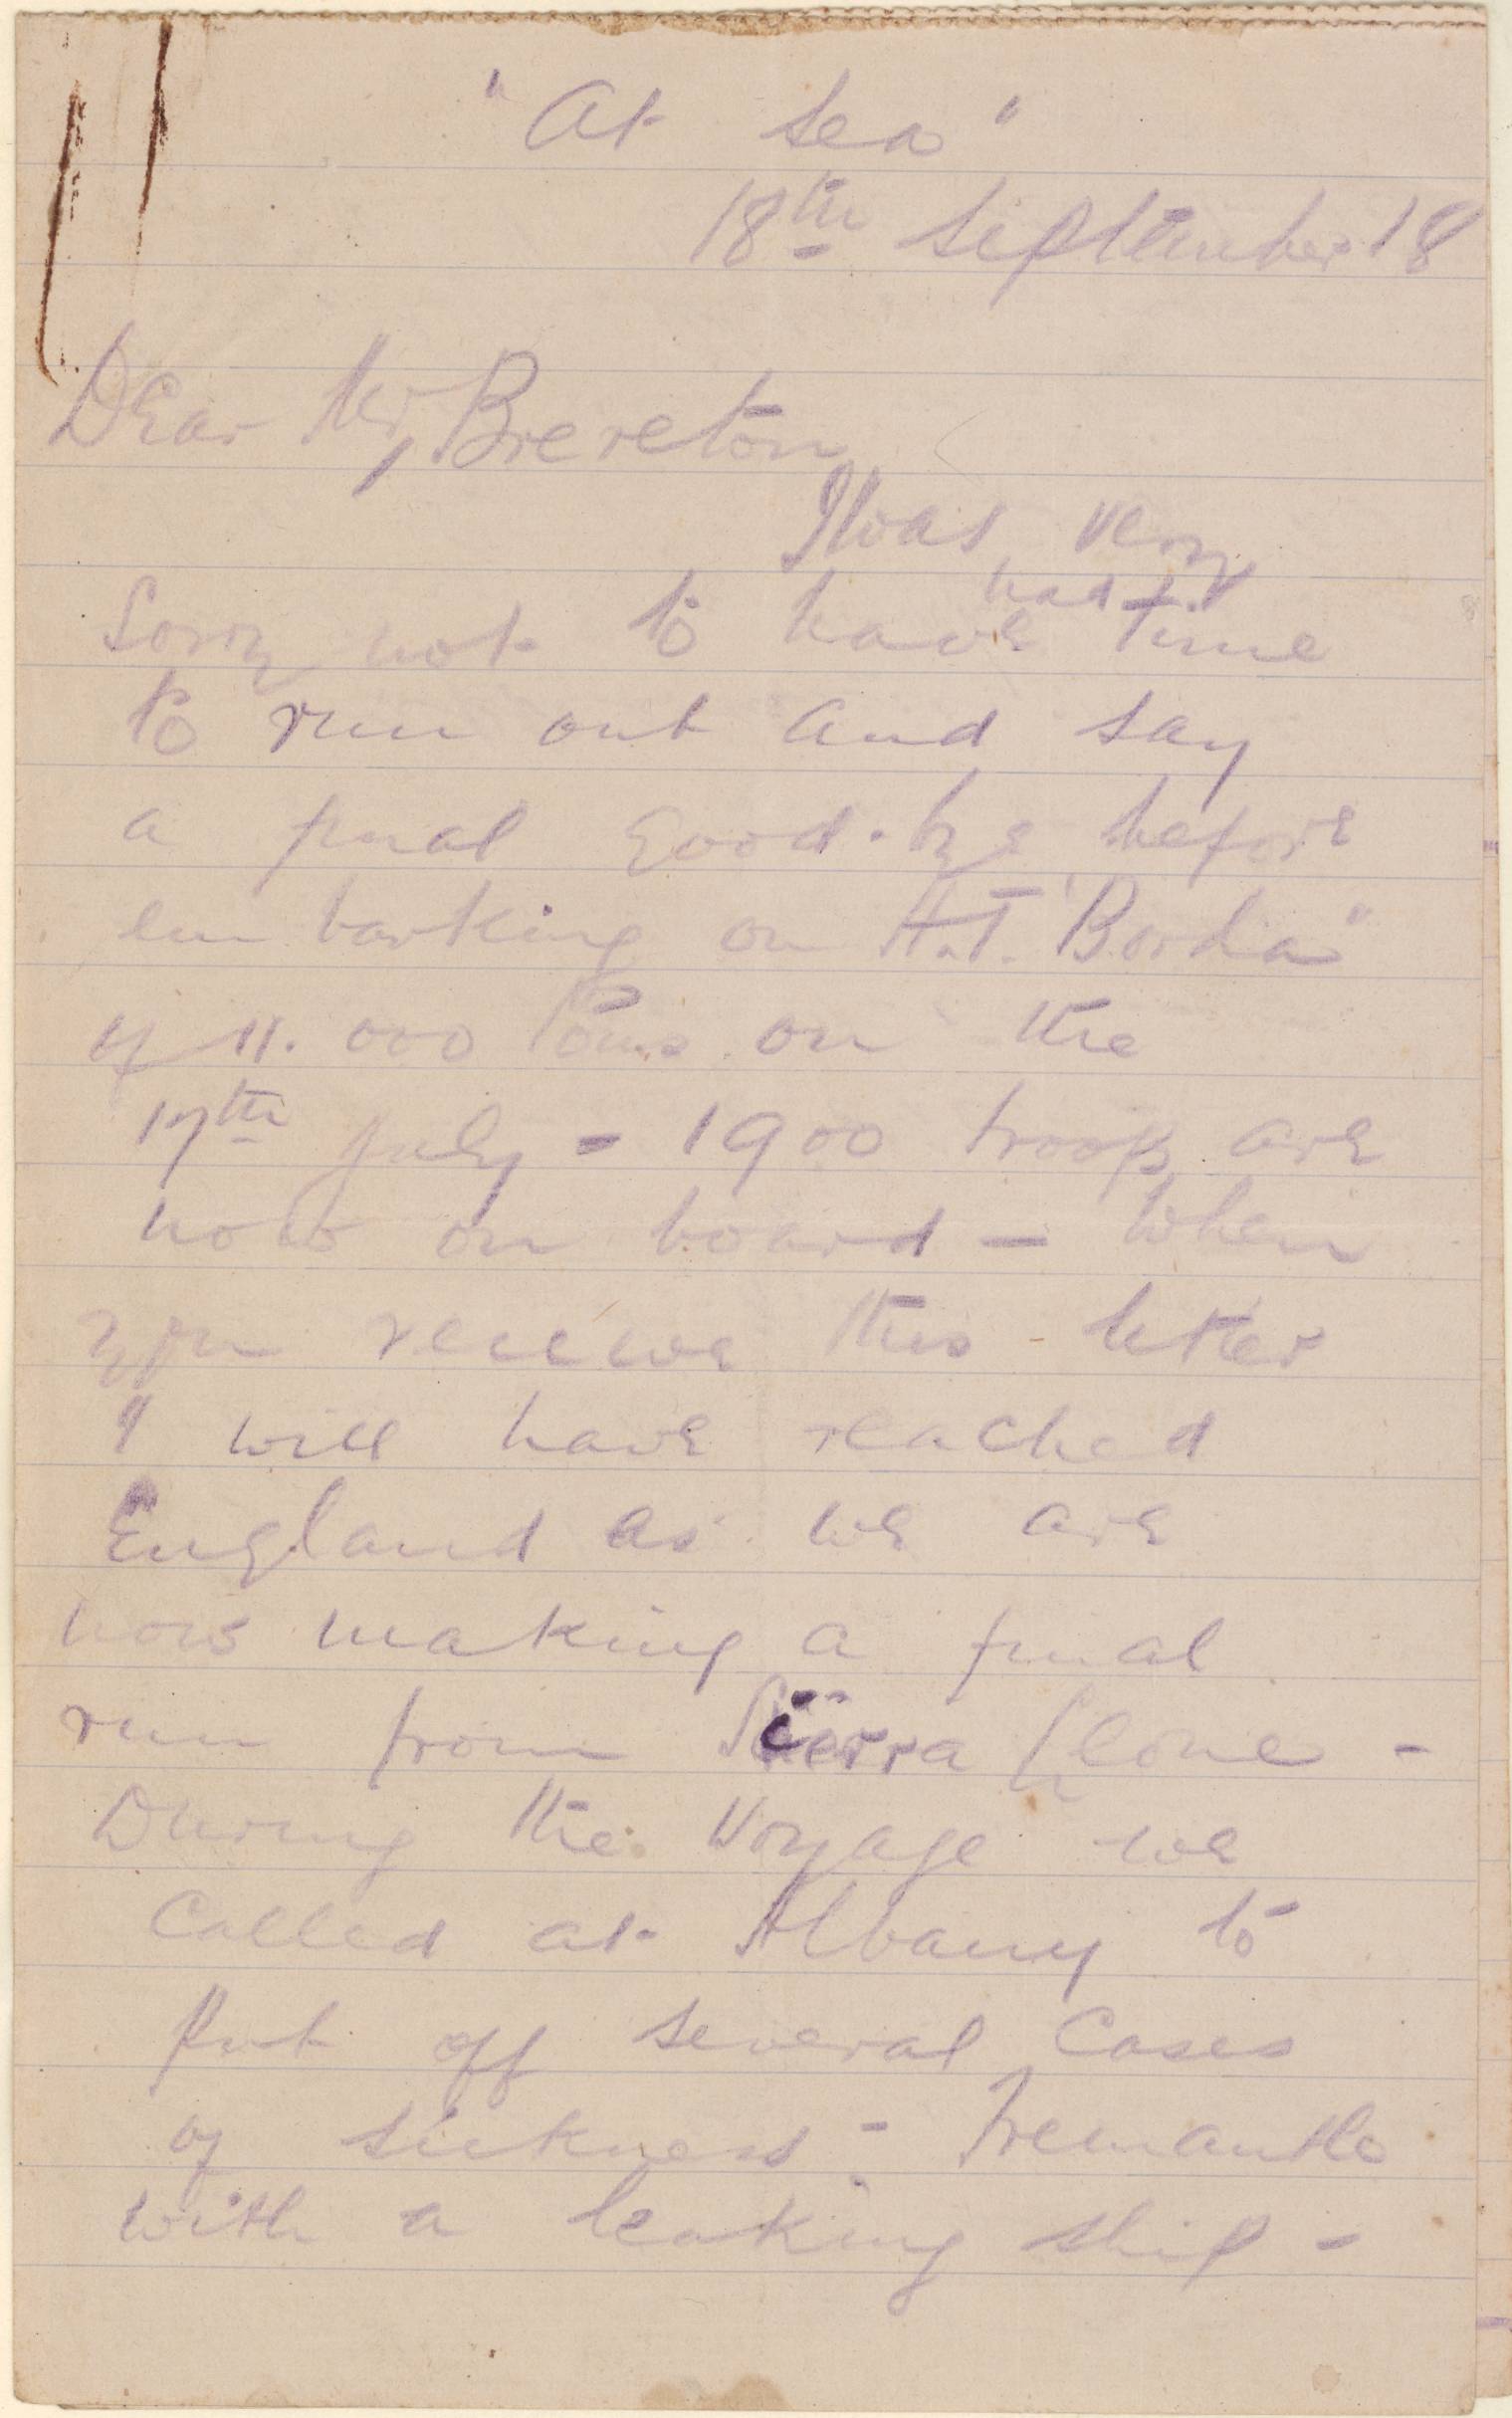 "At Sea"
18th September 18
Dear Mr, Brereton
I was very
had
Sorry not to have time
to run out and say
a final Good-bye before
em barking on H.T. "Borda"
of 11.000 Tons on the
17th July - 1900 troops are
now on board - When
you receive this letter
I will have reached
England as we are
now making a final
run from Sierra Leone -
During the Voyage we
Called at Albany to
Put off several Cases
of sickness - Fremantle
with a leaking ship -